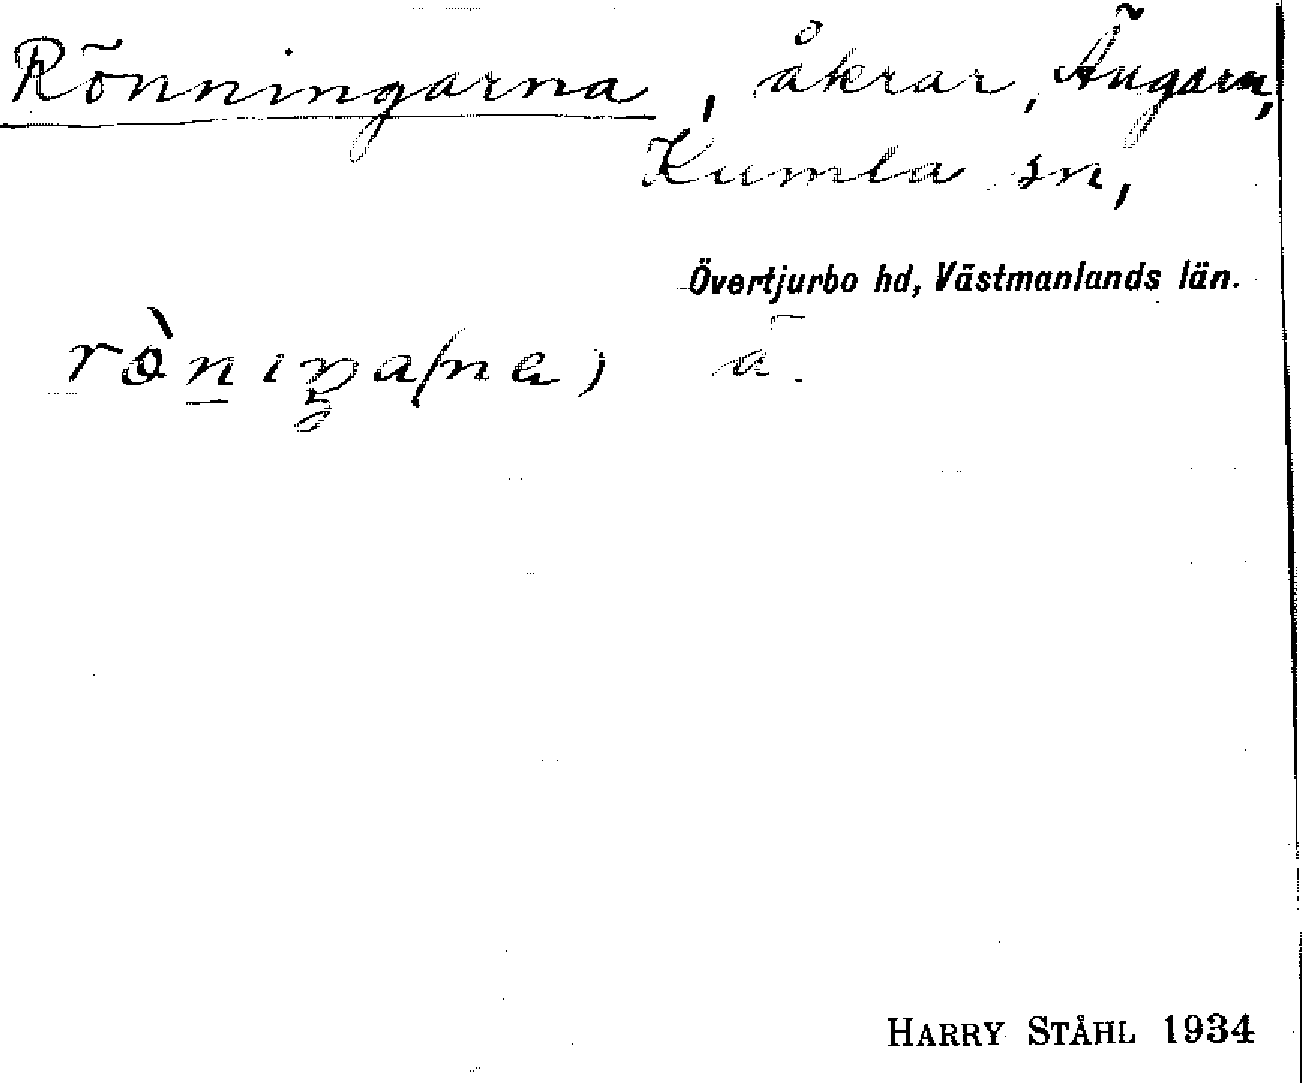 Rönningarna, åkrar, Ängarn,
Kumla sn,
Övertjurbo hd, Västmanlands län.
rò̱n̲ıŋa(na) ä.
HARRY STÅHL 1934